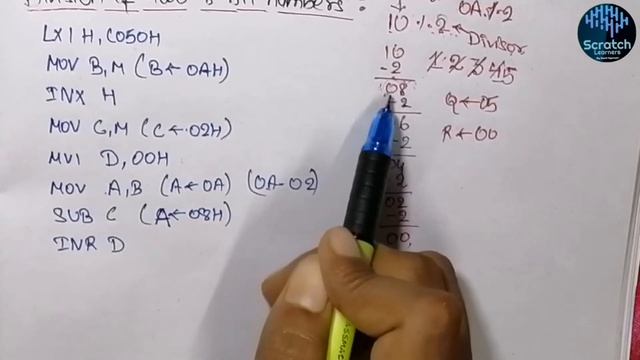 Division of two 8 Bit numbers:
LXI H, C050H
MOV B,M (B←0AH)
INX H
MOV C,M (C←02H)
MVI D, 00H
MOV A,B (A←0A) (0A-02)
SUB C (A←08H)
INR D
0A/.2
10 /. 2 ← Divisor
10
-2
08
-2
6
-2
04
2
02
-2
00
1 2 3 4 5
Q←05
R←00
Scratch
Learners